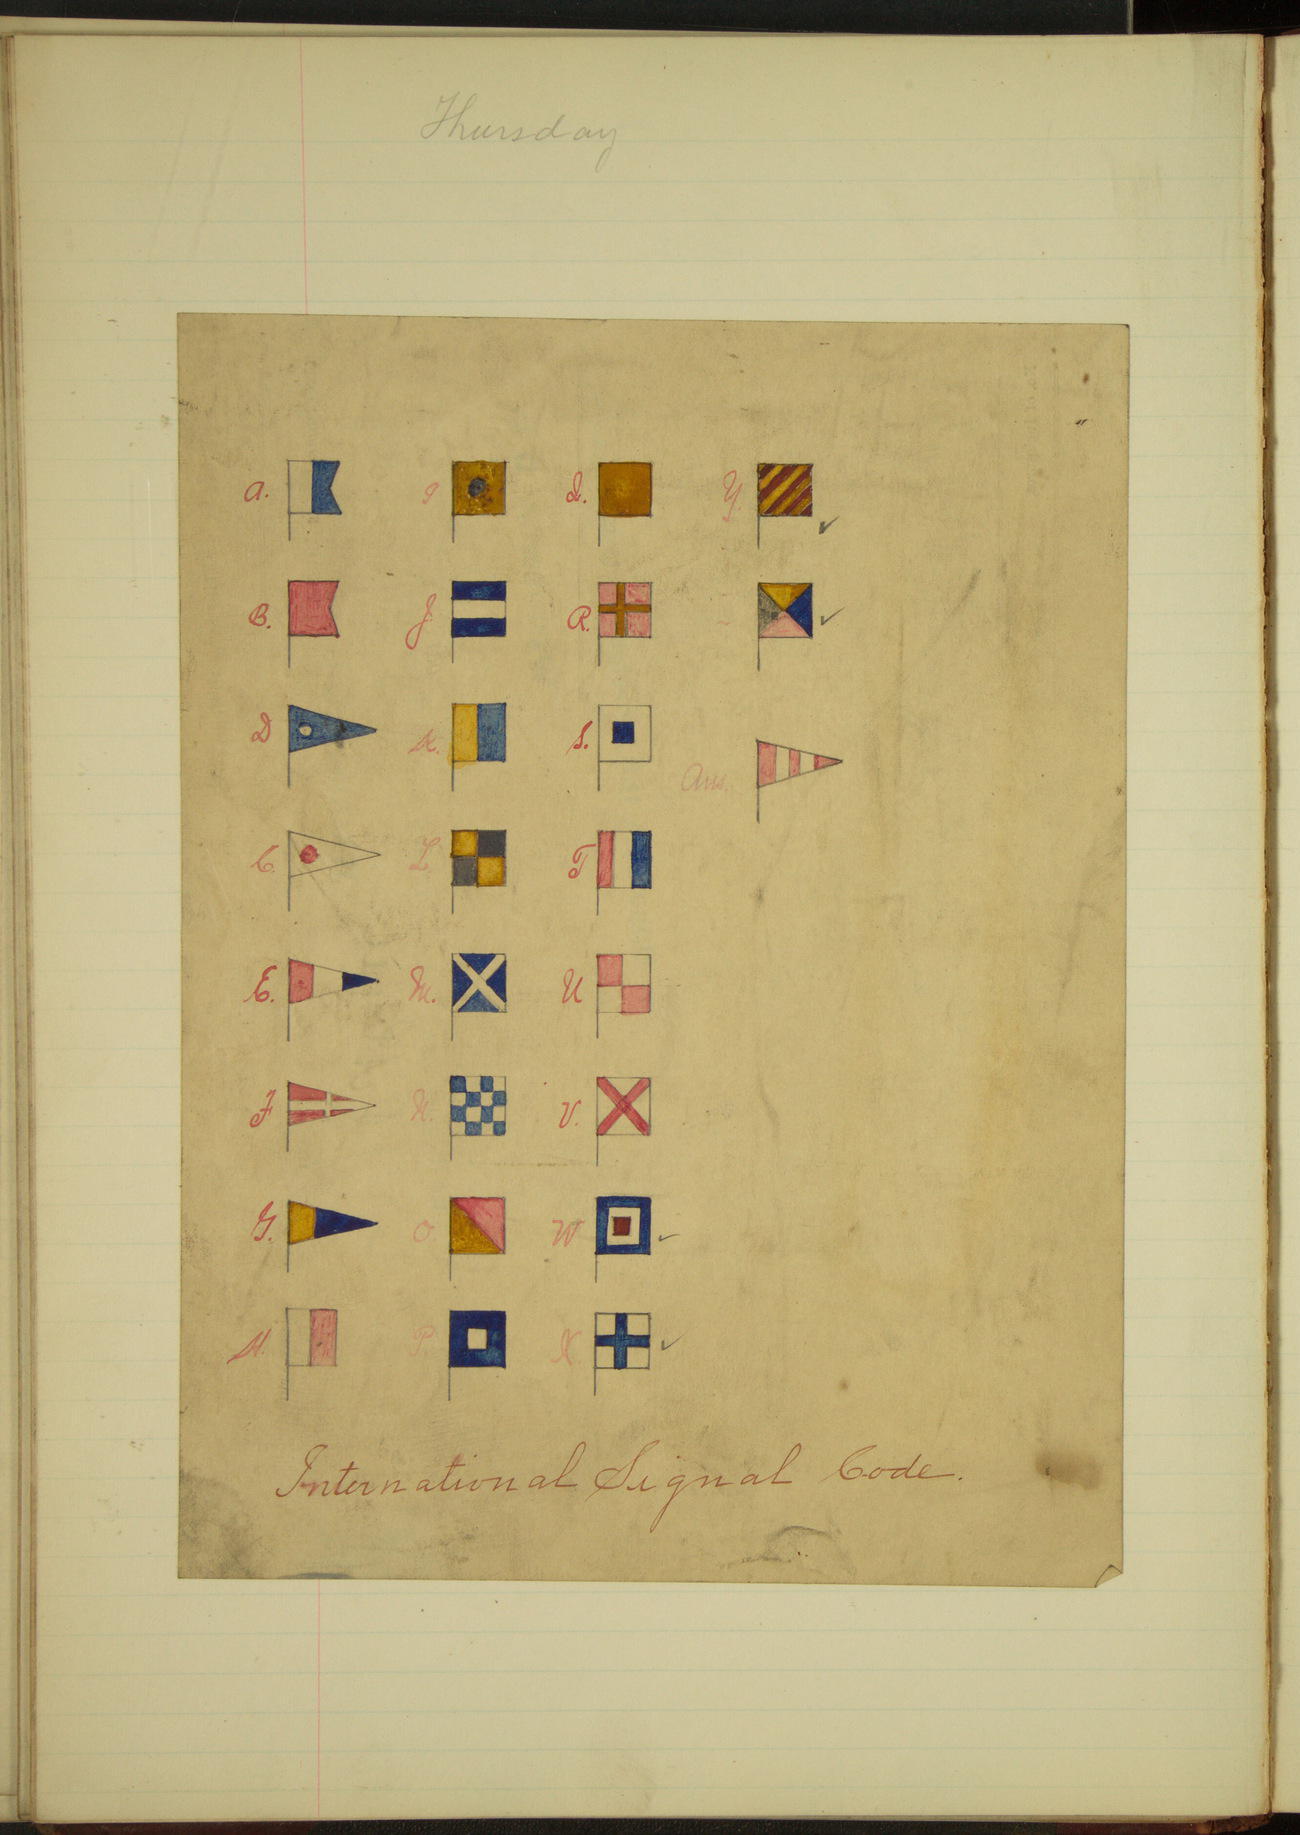 Thursday
A.
B.
D
C.
E.
F
G.
H.
J
K.
L
M.
N.
O.
P.
Q.
R.
S.
T
U
V.
W
X
Y.
Ans.
International Signal Code.